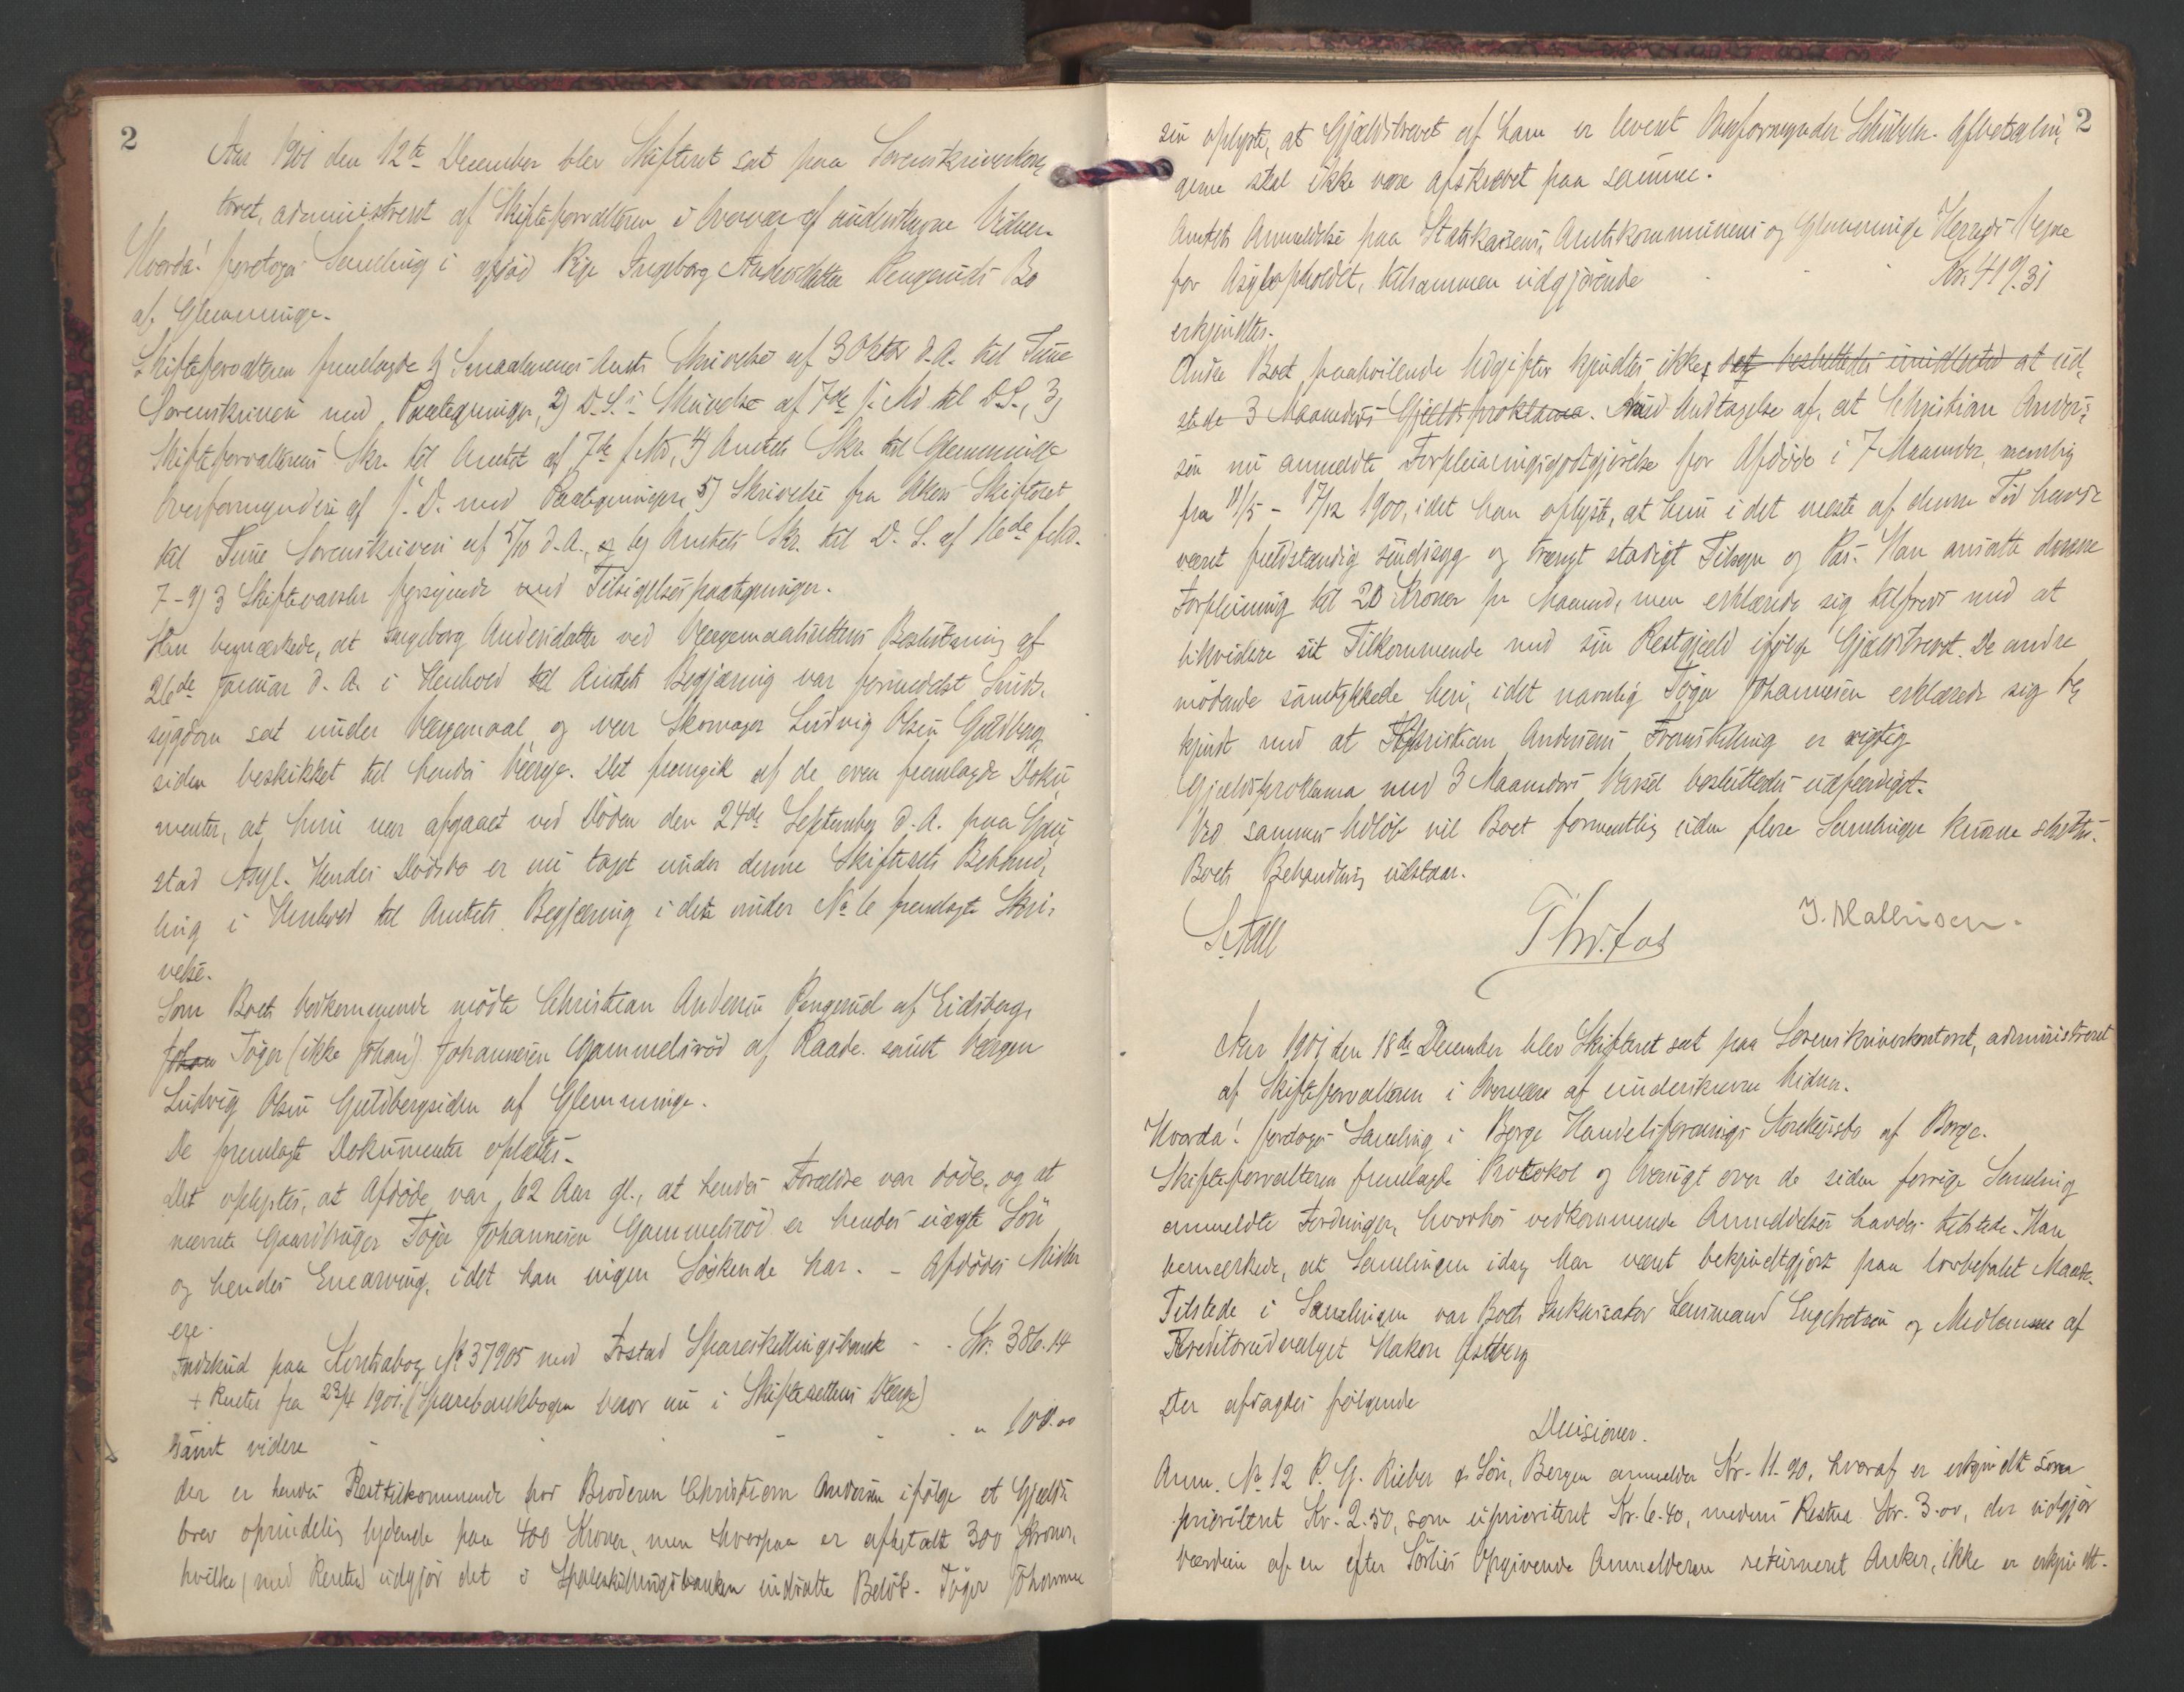 2
Aar 1901 den 12te December blev Skifteret sat paa Sorenskriverkon,
toret, administreret af Skifteforvalteren i Overvær af undertegnede Vidner.
Hvorda! foretoges Samling i afdød Pige Ingeborg Andersdatter Rengeruds Bo
af Glemminge.
Skifteforvalteren fremlagde 1) Smaalenenes Amts Skrivelse af 3 Oktbr d. A. til Tune
Sorenskriveri med Paategninger, 2) D. S.s Skrivelse af 7de f. Md til D. S., 3)
Skifteforvalterens Skr. til Amtet af 7de f. Md, 4) Amtets Skr. til Glemminge
Overformynderi af s. D. med Paategninger, 5) Skrivelse fra Akers Skifteret
til Tune Sorenskriveri af 5/10 d. A., og 6) Amtets Skr. til D. S. af 16de f. Md.
7-9) 3 Skiftevarsler forsynede med Tilsigelsespaategninger.
Han bemærkede, at Ingeborg Andersdatter ved Værgemaalsrettens Beslutning af
26de Januar d. A. i Henhold til Amtets Begjæring var formedelst Sinds,
sygdom sat under Værgemaal og var Skomager Ludvig Olsen Guldberg,
siden beskikket til hendes Værge. Det fremgik af de oven fremlagde Doku,
menter, at hun var afgaaet ved Døden den 24de September d. A. paa Gau,
stad Asyl. Hendes Dødsbo er nu taget under denne Skifterets Behand,
ling i Henhold til Amtets Begjæring i dets under No 6 fremlagte Skri,
velse.
Som Boets Vedkommende mødte Christian Andersen Rengerud af Eidsberg,
Johan Tøger (ikke Johan) Johannesen Gammelsrød af Raade samt Værgen
Ludvig Olsen Guldbergsiden af Glemminge.
De fremlagte Dokumenter oplæstes.
Det oplystes, at Afdøde var 62 Aar gl., at hendes Forældre var døde, og at
nævnte Gaardbruger Tøger Johannesen Gammelsrød er hendes uægte Søn
og hendes Enearving, idet han ingen Søskende har. - Afdødes Midler
ere.
Indskud paa Kontrabog No 37905 med Frstad Spareskillingsbank - - Kr. 386.14
+ Renter fra 23/4 1901. (Sparebankbogen beror nu i Skifterettens Værge)
samt videre - - - - - " 100.00
der er hendes Resttilkommende hos Broderen Christian Andersen ifølge et Gjælds
brev oprindelig lydende paa 400 Kroner, men hvorpaa er afbetalt 300 Kroner,
hvilke (med Renter) udgjør det i Spareskillingsbanken indsatte Beløb. Tøger Johanne
2
sen oplyste, at Gjældsbrevet af ham er leveret Overformynder Schübeler. Afbetalin,
gerne skal ikke være afskrevet paa samme.
Amtets Anmeldelse paa Statskassens, Amtskommunens og Glemminge Herreds Vegne
for Asylopholdet, tilsammen udgjørende - - - Kr. 419.31
erkjendtes.
Andre Boet paahvilende Udgifter kjendtes ikke, det besluttedes imidlertid at ud,
stede 3 Maaneders Gjældsproklama. med Undtagelse af, at Christian Ander,
sen nu anmeldte Forpleiningsgodtgjørelse for Afdøde i 7 Maaneder, nemlig
fra 18/5 - 17/12 1900, idet han oplyste, at hun i det meste af denne Tid havde
været fuldstændig sindssyg og trængt stadigt Tilsyn og Pas. Han ansatte denne
Forpleining til 20 Kroner pr Maaned, men erklærede sig tilfreds med at
likvidere sit Tilkommende med sin Restgjæld ifølge Gjældsbrevet. De andre
mødende samtykkede heri, idet navnlig Tøger Johannesen erklærede sig be,
kjendt med at Christian Andersens Fremstilling er rigtig
Gjældsproklama med 3 Maaneders Varsel besluttedes udfærdiget.
Ved sammes Udløb vil Boet formentlig uden flere Samlinger kunne sluttes.
Boets Behandling udstaar.
S. Aall Thv. Fos J. Mathisen.
Aar 1901 den 18de December blev Skifteret sat paa Sorenskriverkontoret, administreret
af Skifteforvalteren i Overvær af underskrevne Vidner.
Hvorda! foretoges Samling i Borge Handelsforenings Konkursbo af Borge.
Skifteforvalteren fremlagde Protokol og Oversigt over de siden forrige Samling
anmeldte Fordringer, hvorhos vedkommende Anmeldelser havdes tilstede. Han
bemærkede, at Samlingen idag har været bekjendtgjort paa lovbefalet Maade.
Tilstede i Samlingen var Boets Inkassator Lensmand Engebretsen og Medlemme af
Kreditorudvalget Hakon Østberg
Der afsagdes følgende
Decisioner.
Anm. No 12 P. G. Rieber & Søn, Bergen anmelder Kr. 11.90, hvoraf er erkjendt som
prioriteret Kr. 2.50, som uprioriteret Kr. 6.40, medens Resten Kr. 3.00, der udgjør
Værdien af en efter Sørlies Opgivende Anmelderen returneret Anker, ikke er erkjendt.